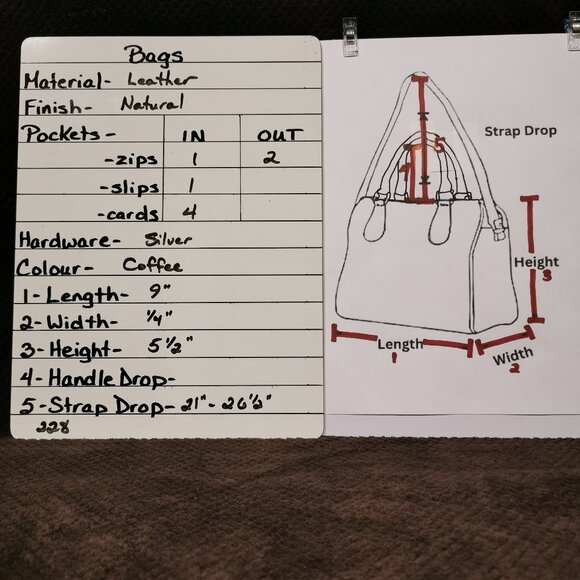 Bags
Material- Leather
Finish- Natural
Pockets- IN OUT
-zips 1 2
-slips 1
-cards 4
Hardware- Silver
Colour- Coffee
1-Length- 9"
2-Width- 1/4"
3-Height- 5 1/2"
4-Handle Drop-
5-Strap Drop- 21"- 26 1/2"
228
Strap Drop
5
4
Height
3
Length
1
Width
2